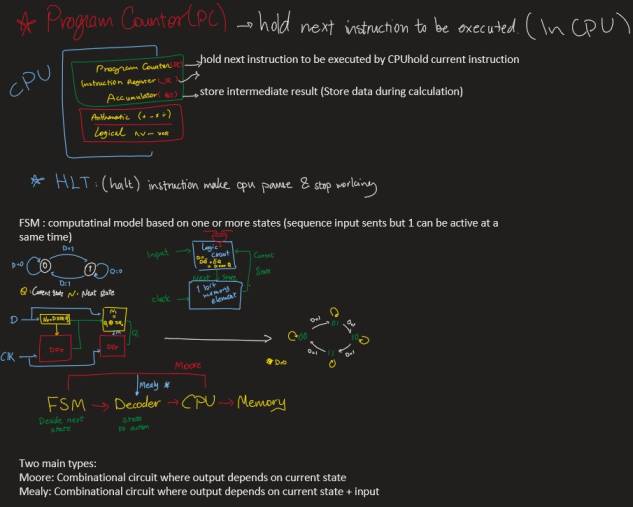 * Program Counter (PC) → hold next instruction to be executed. (In CPU)
CPU
Program Counter
hold next instruction to be executed by CPUhold current instruction
Instruction Register
Accumulator
store intermediate result (Store data during calculation)
Arithmatic (+ - × ÷)
Logical
* HLT : (halt) instruction make cpu pause & stop working
FSM : computatinal model based on one or more states (sequence input sents but 1 can be active at a
same time)
D=1
D=0
0
1
D=0
D=1
Q : Current State N : Next state
Input
Logic
circuit
Current
State
Next State
clock
1 bit
memory
element
D
Q
CLK
D=1
D=1
D=1
D=0
Moore
Mealy *
FSM → Decoder → CPU → Memory
Decide next
state
State
to action
Two main types:
Moore: Combinational circuit where output depends on current state
Mealy: Combinational circuit where output depends on current state + input